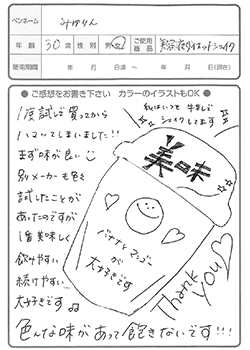 ペンネーム みゆりん
年齢 30歳 性別 男・女 ご使用商品 美容液ダイエットシェイク
使用期間 年 月 日頃 ～ 年 月 日(現在)
●ご感想をお書き下さい カラーのイラストもOK●
1度試しで買ってから
ハマってしまいました!!
まず味が良い
別メーカーも色々
試したことが
あったのですが
1番美味しく
飲みやすい
続けやすい
大好きです
私はいつも牛乳で
シェイクしてます
美味
バナナとマンゴーが
大好きです
Thank you
色んな味があって飽きないです!!!